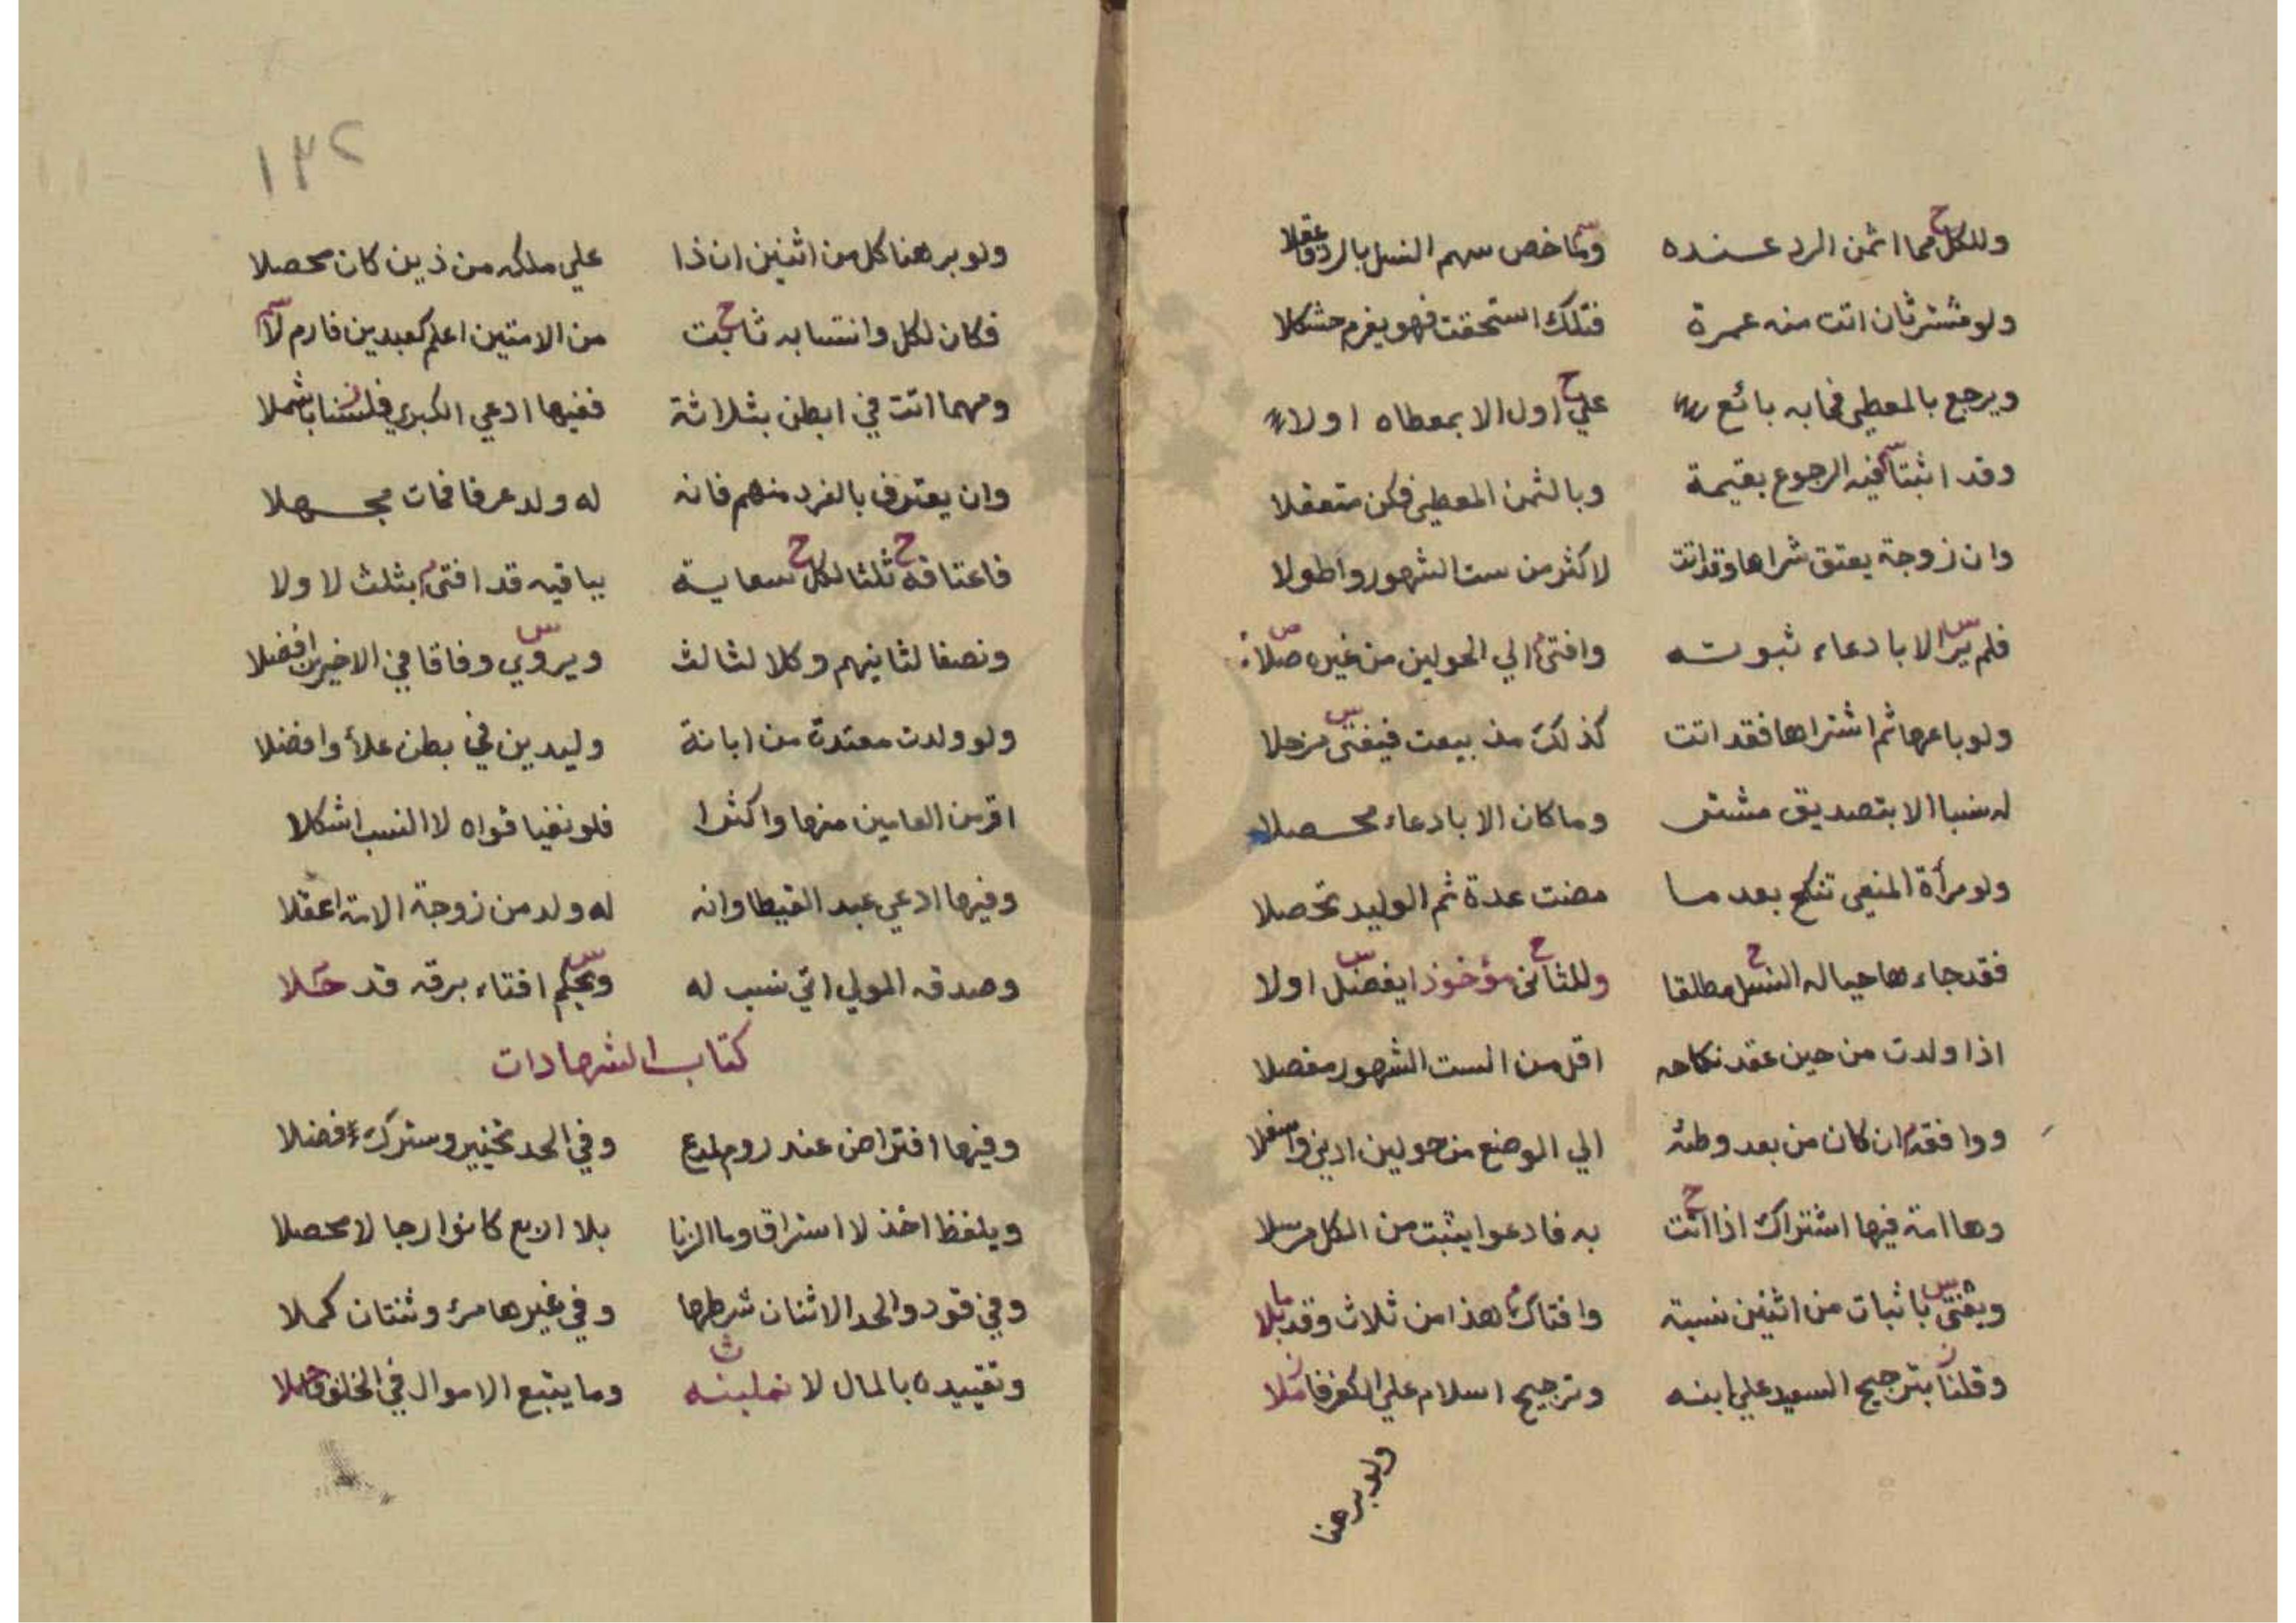 وللكل مما اثمن الرد عنده وما خص سهم النسل بالرد عقلا
ولو مشتر ثان اتت منه عمرة فتلك استحقت فهو يغرم مشكلا
ويرجع بالمعطى فما به بائع على اول الا بمعطاه اولا
وقد اثبتا فيه الرجوع بقيمة وبالثمن المعطى فكن متعقلا
وان زوجة يعتق شراها وقد اتت لاكثر من ست الشهور واطولا
فلم ير الا بادعاء ثبوته وافتى الي الحولين من غيره صلا
ولو باعها ثم اشتراها فقد اتت كذلك مذ بيعت فيفتى مرجلا
له نسبا الا بتصديق مشتر وما كان الا بادعاء محصلا
ولو مرأة المنعى تنكح بعد ما مضت عدة ثم الوليد تحصلا
فقد جاءها حيا له النسل مطلقا وللثانى مؤخوذا يفضل اولا
اذا ولدت من حين عقد نكاحه اقل من الست الشهور مفصلا
ووافقه ان كان من بعد وطئه الي الوضع من حولين ادنى واسفلا
وها امة فيها اشتراك اذا اتت به فادعوا يثبت من الكل مرسلا
ويفتى باثبات من اثنين نسبة وافتاك هذا من ثلاث وقد بلا
وقلنا بترجيح السعيد علي ابنه وترجيح اسلام علي الكفر فاملا
ولو برهنا
١٣٢
ولو برهنا كل من اثنين ان ذا علي ملكه من ذين كان محصلا
فكان لكل وانتسابه ثابت من الامتين اعلم كعبدين فارم لا
ومهما اتت في ابطن بثلاثة ففيها ادعي الكبرى فلسنا باشملا
وان يعترف بالفرد منهم فانه له ولد عرفا فمات مجهلا
فاعتاقه ثلثا لكل سعاية بباقيه قد افتى بثلث لاولا
ونصفا لثانيهم وكلا لثالث ويروي وفاقا في الاخيرين افضلا
ولو ولدت معتدة من ابانة وليدين في بطن علا وافضلا
اقر من العامين منها واكثرا فلو نفيا قواه لا النسب اشكلا
وفيها ادعي عبد لقيطا وانه له ولد من زوجة الامة اعقلا
وصدقه المولي اتي نسب له ويحكم افتاء برقه قد حلا
كتاب الشهادات
وفيها افتراض عند روم لمدع وفي الحد تخيير وسترك افضلا
ويلفظ اخذ لا استراق وما الزنا بلا الاربع كانوا رجالا محصلا
وفي قود والحد الاثنان شرطها وفي غيرها مرء وثنتان كملا
وتقييده بالمال لا وما يتبع الاموال في الخلف